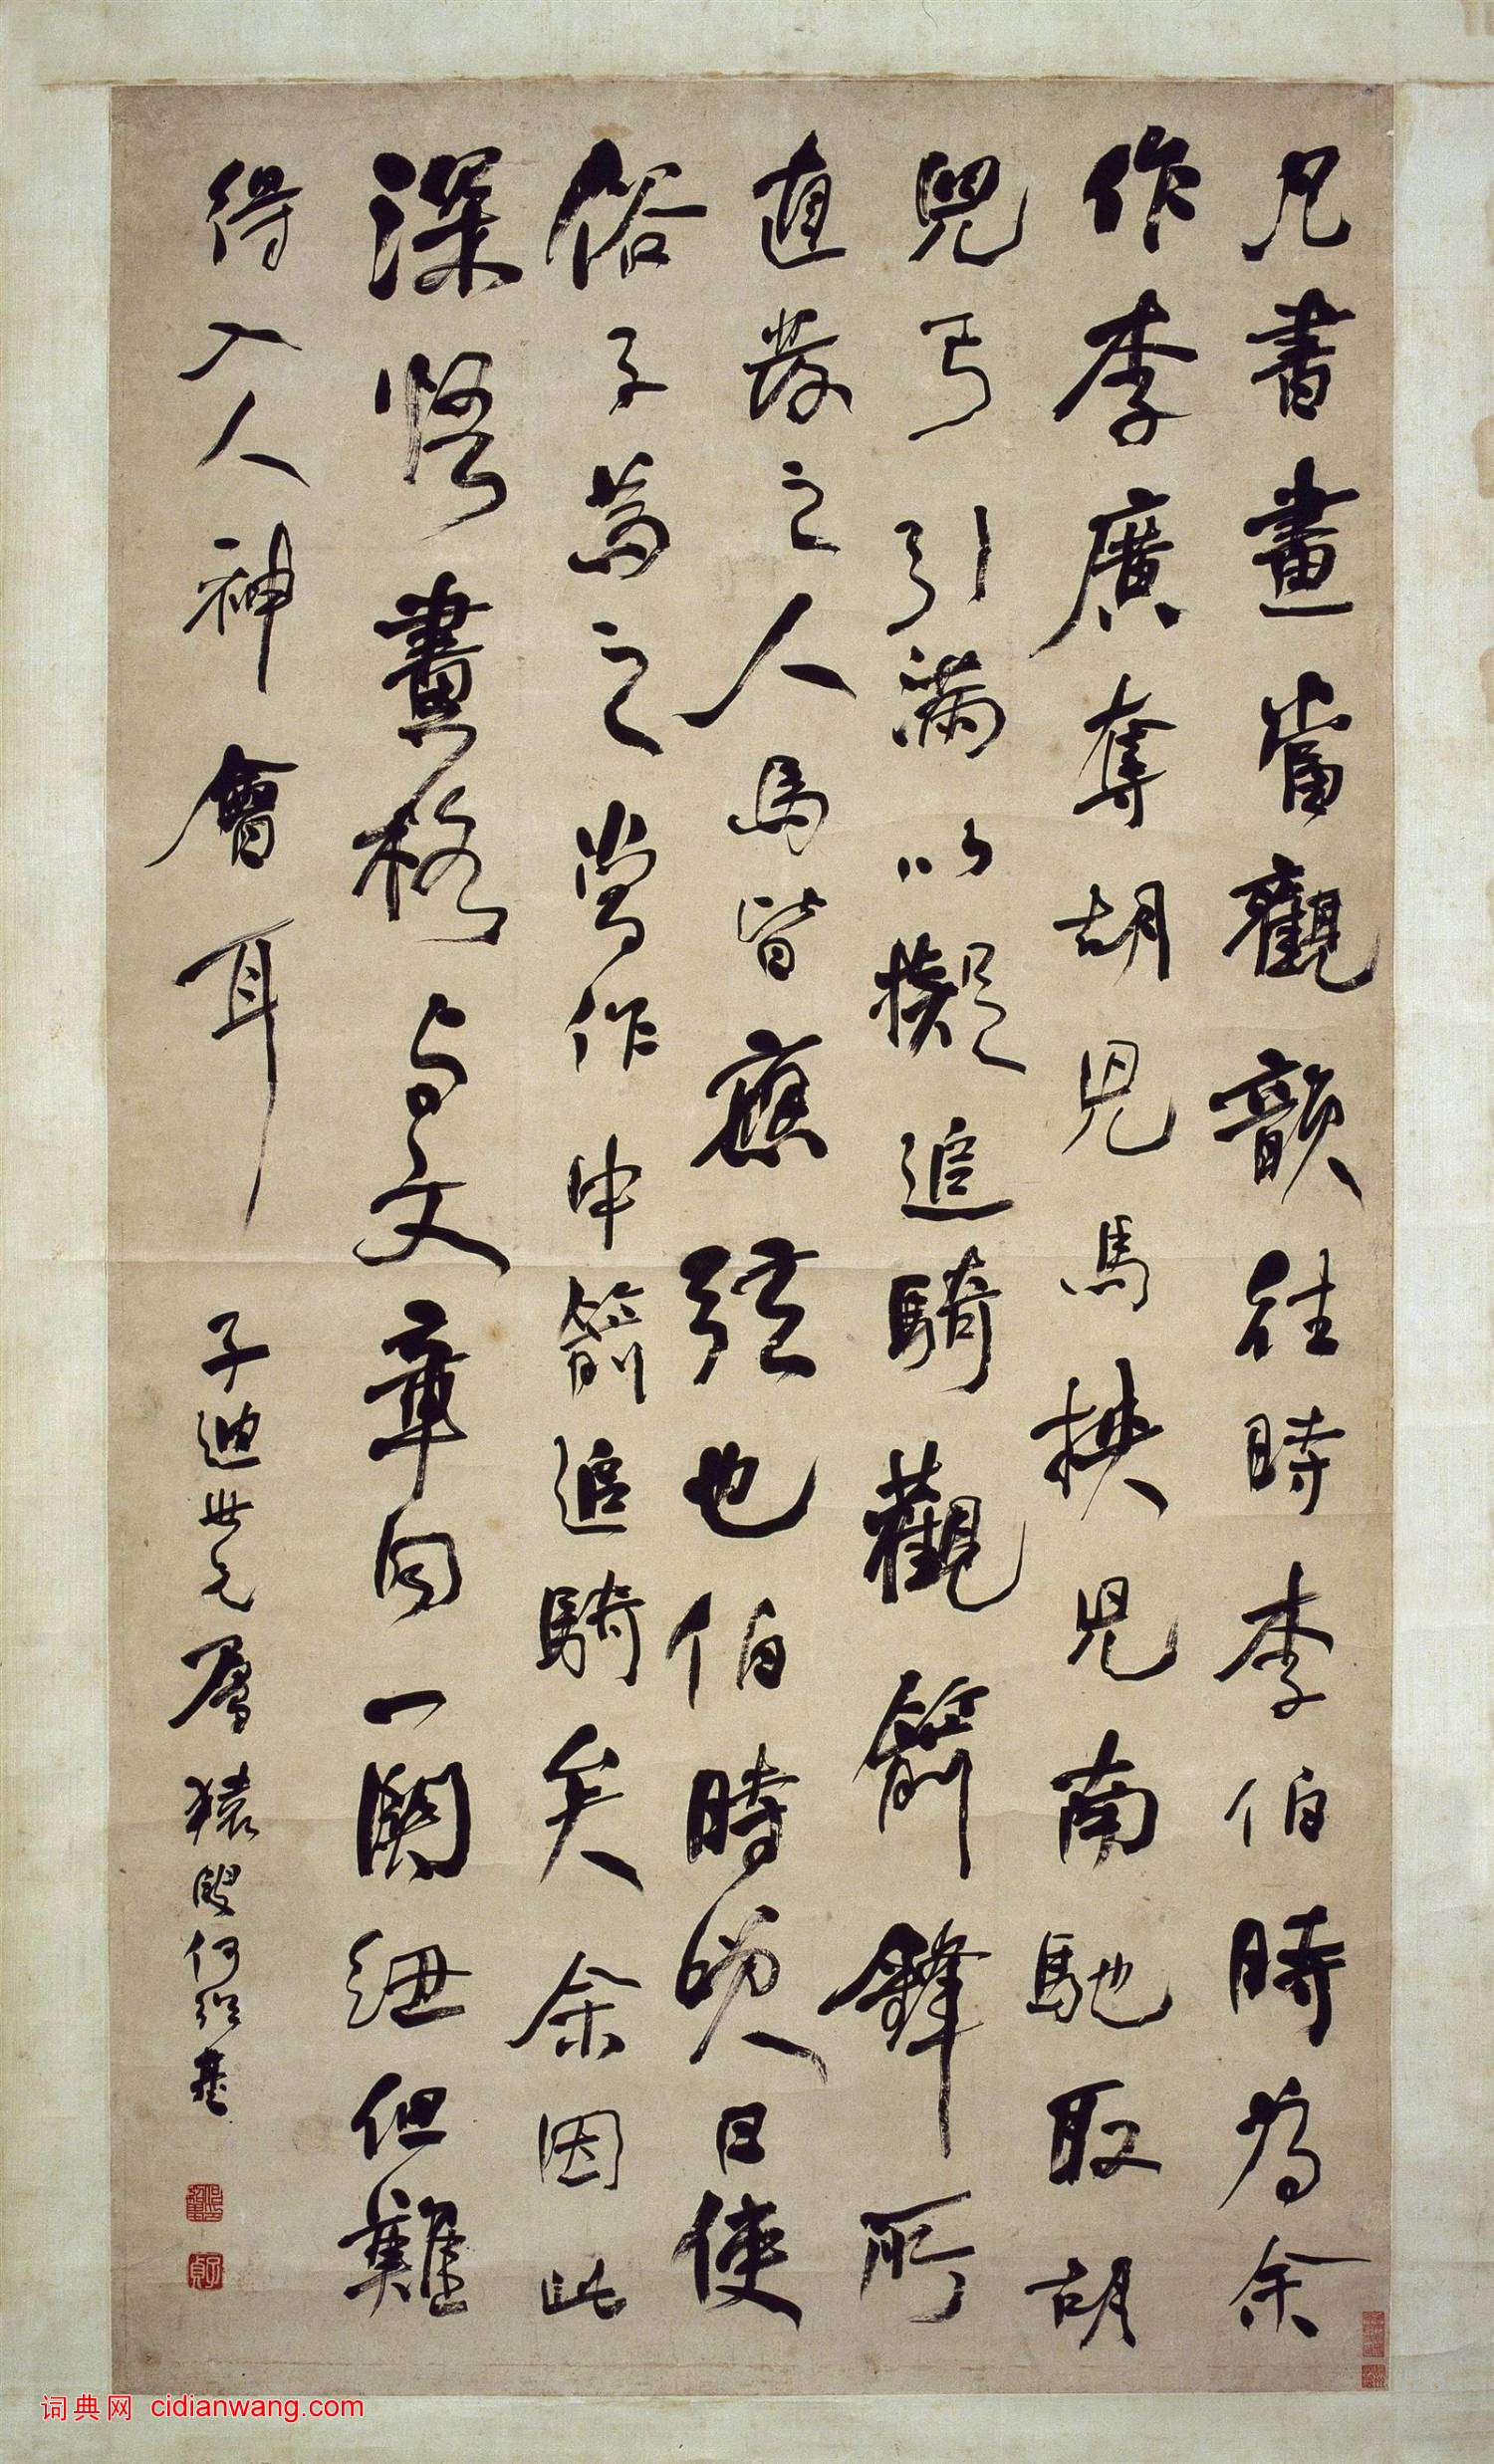 凡書畫當觀韻往時李伯時為余
作李廣奪胡兒馬挾兒南馳取胡
兒弓引滿以擬追騎觀箭鋒所
直發之人馬皆應弦也伯時咲曰使
俗子為之當作中箭追騎矣余因此
深悟畫格与文章同一關紐但難
得入人神會耳
子迪世兄屬 猿叟何紹基
子貞
词典网 cidianwang.com